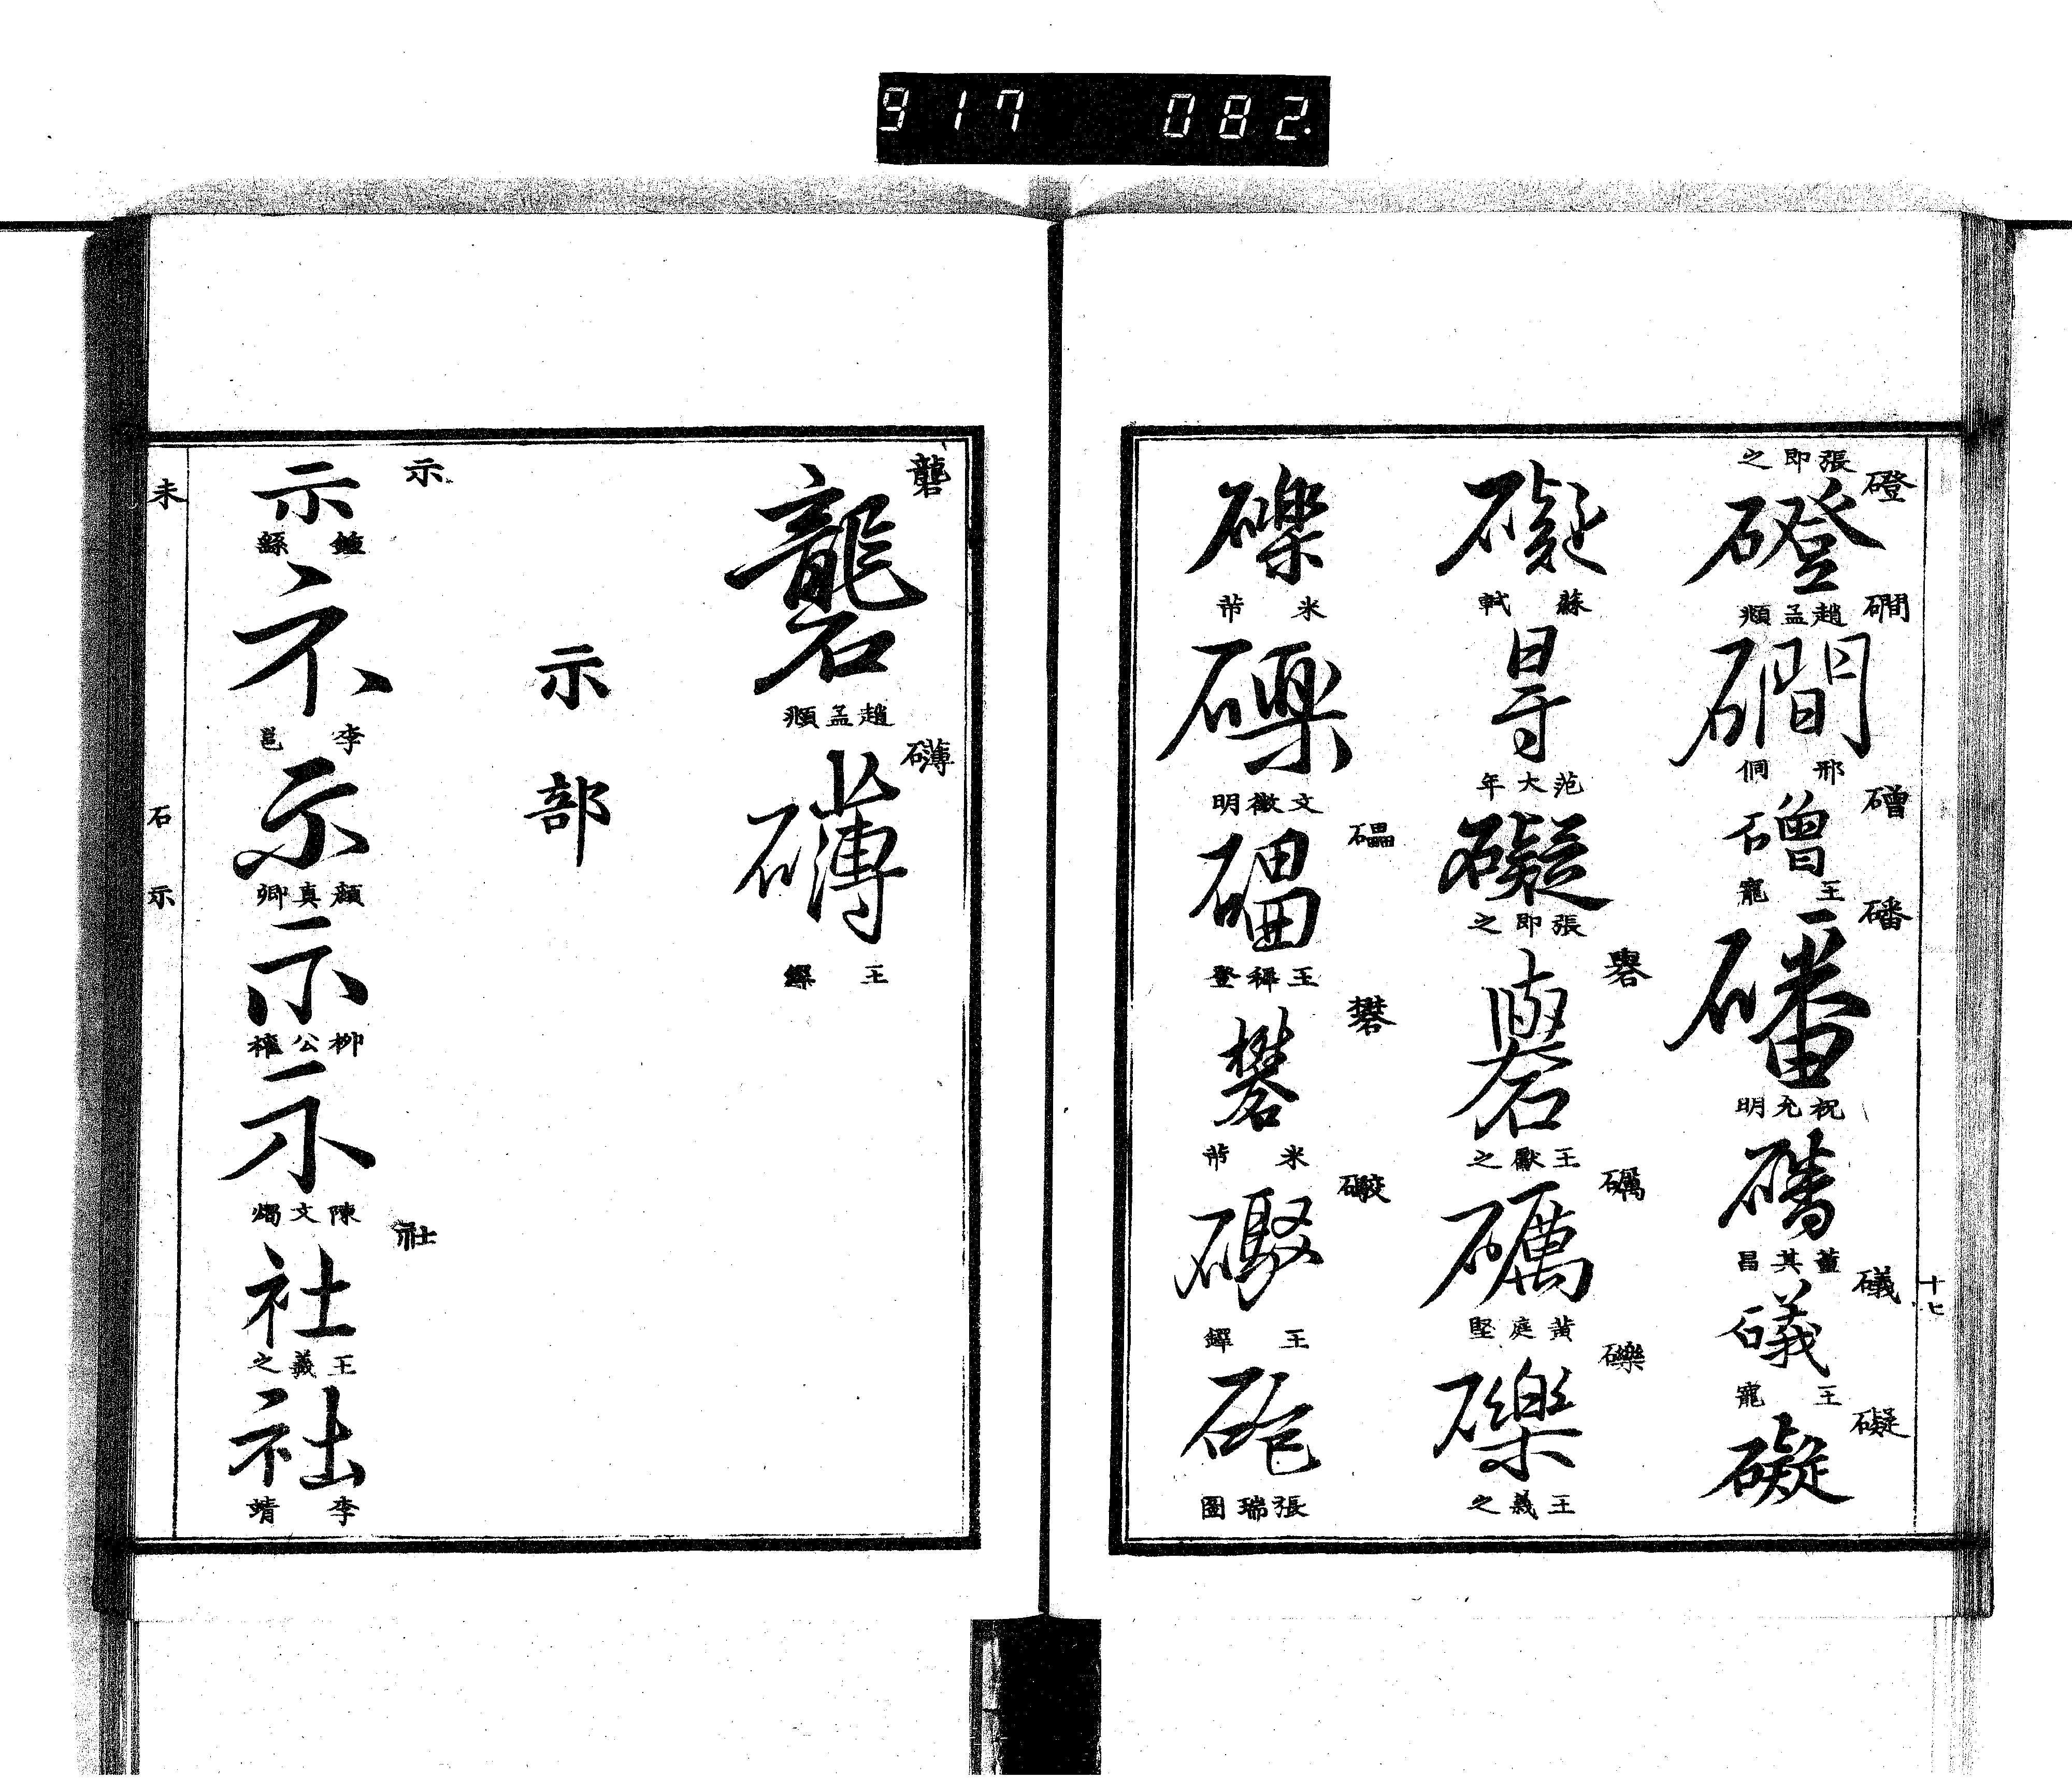 917 082.
十七
張即之
磴
磴
趙孟頫
磵
磵
邢侗
磳
磳
王寵
磻
磻
祝允明
磻
董其昌
礒
礒
王寵
礙
礙
蘇軾
㝵
范大年
礙
張即之
礜
礜
王獻之
礪
礪
黃庭堅
礫
礫
王羲之
礫
米芾
礫
文徵明
礧
礧
王穉登
礬
礬
米芾
王鐸
張瑞圖
礱
礱
趙孟頫
礴
礴
王鐸
示部
示
示
鍾繇
示
李邕
示
顏真卿
示
柳公權
示
陳文燭
社
社
王羲之
社
李靖
未
石
示